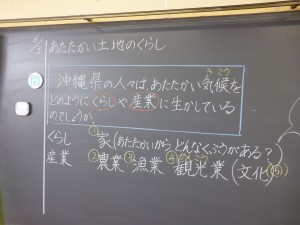 6/3 あたたかい土地のくらし
沖縄県の人々は、あたたかい気候を
きこう
どのようにくらしや産業に生かしている
のでしょうか。
くらし ①家(あたたかいから どんなくふうがある?)
産業 ②農業 ③漁業 ④観光業(文化⑤)
かんこう